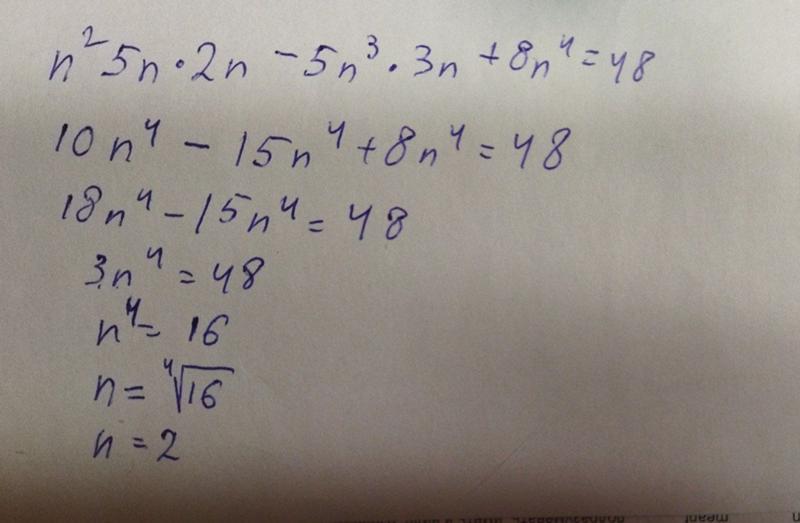 n²5n·2n - 5n³·3n + 8n⁴ = 48
10n⁴ - 15n⁴ + 8n⁴ = 48
18n⁴ - 15n⁴ = 48
3n⁴ = 48
n⁴ = 16
n = ⁴√16
n = 2